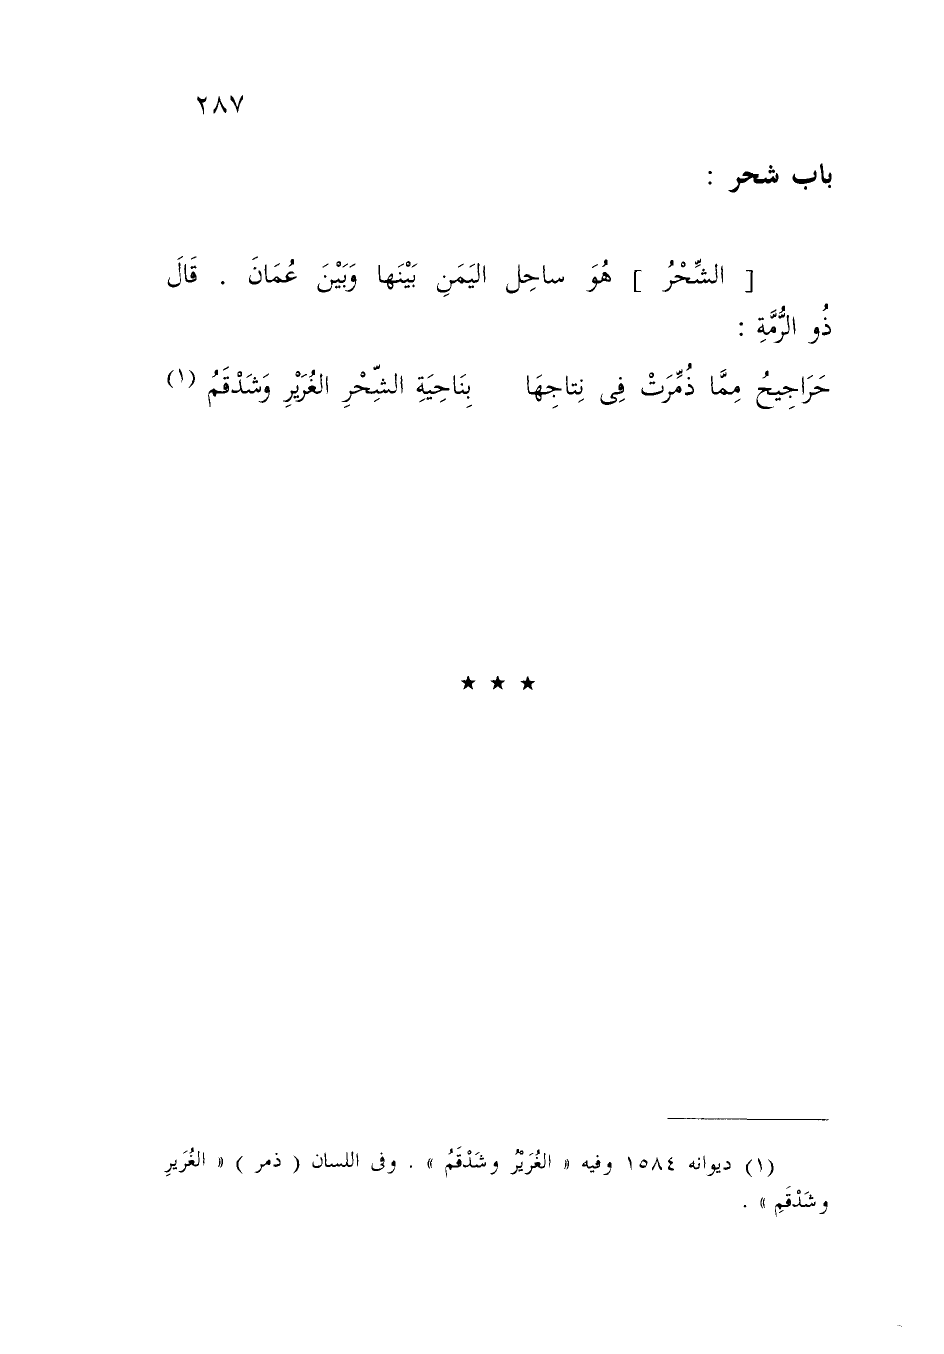 ٢٨٧
باب شحر :
[ الشِّحْرُ ] هُوَ ساحِل اليَمَنِ بَيْنَها وَبَيْنَ عُمَانَ . قَالَ
ذُو الرُّمَّةِ :
حَرَاجِيحُ مِمَّا ذُمِّرَتْ فِى نِتاجِهَا بِنَاحِيَةِ الشِّحْرِ الغُرَيْرِ وَشَدْقَمُ (١)
★ ★ ★
(١) ديوانه ١٥٨٤ وفيه « الغُرَيْرُ وشَدْقَمُ » . وفى اللسان ( ذمر ) « الغُرَيرِ
وشَدْقَمِ » .